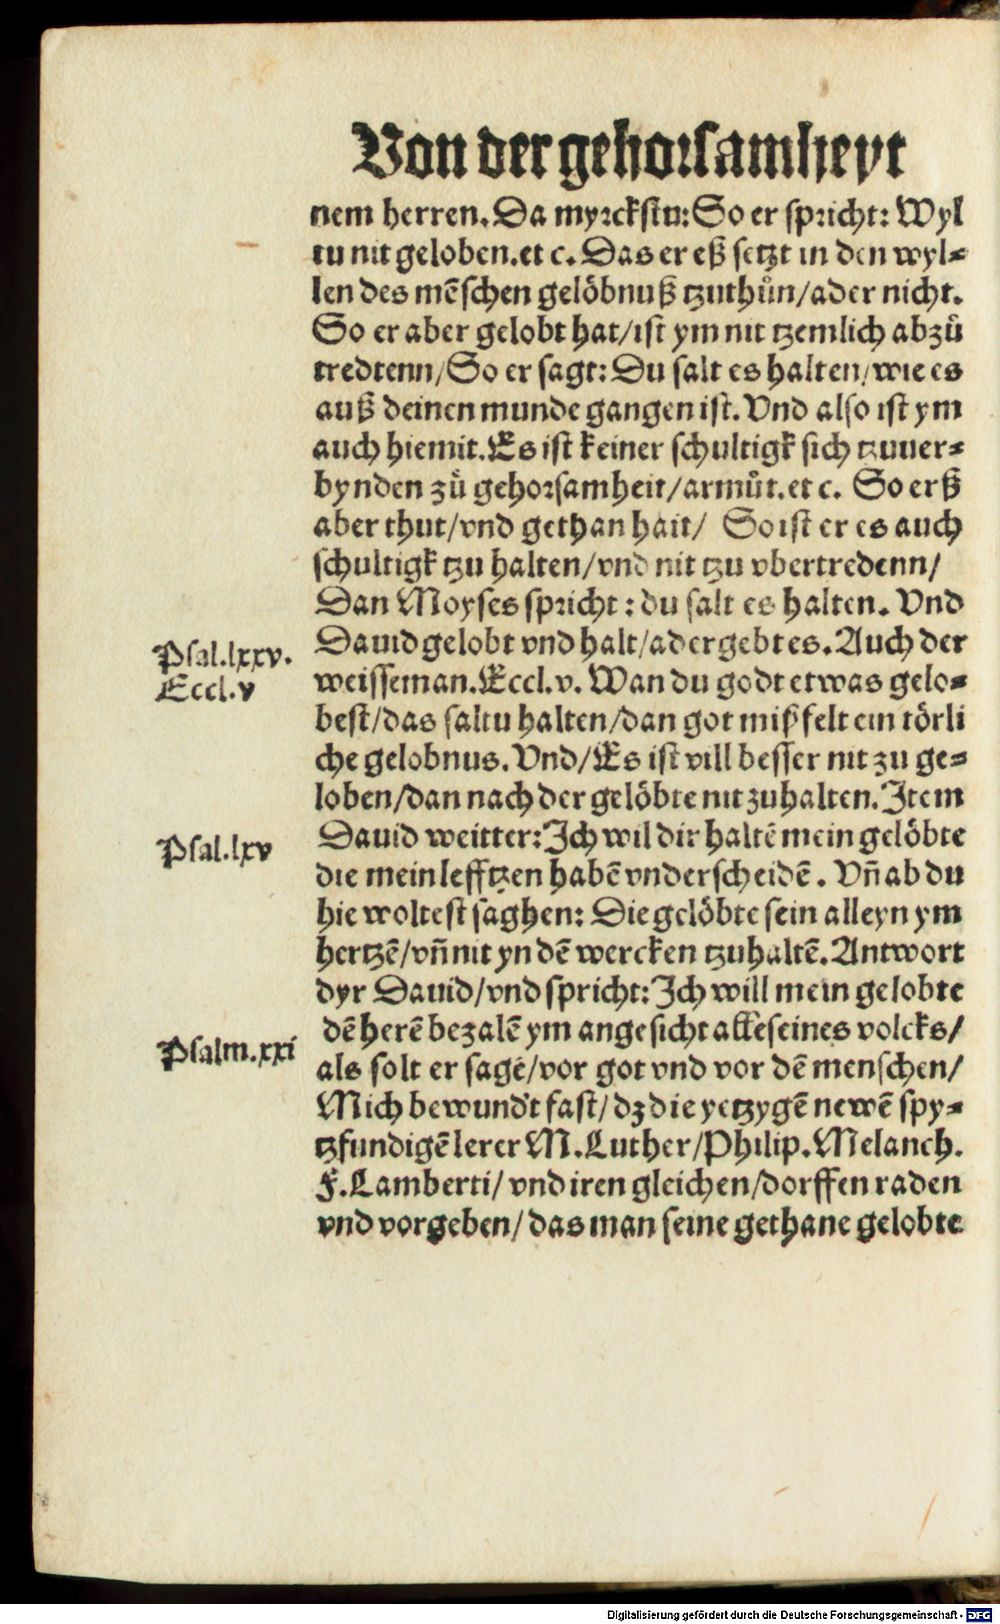 Von der gehorsamheyt
nem herren. Da myrckstu: So er spricht: Wyl
tu nit geloben. et c. Das er eß setzt in den wyl⸗
len des mēschen gelöbnuß tzuthůn/ader nicht.
So er aber gelobt hat/ist ym nit tzemlich abzů
tredtenn/So er sagt: Du salt es halten/wie es
auß deinen munde gangen ist. Vnd also ist ym
auch hiemit. Es ist keiner schultigk sich tzuuer⸗
bynden zů gehorsamheit/armůt. et c. So erß
aber thut/vnd gethan hait/ So ist er es auch
schultigk tzu halten/vnd nit tzu vbertredenn/
Dan Moyses spricht: du salt es halten. Vnd
Dauid gelobt vnd halt/ader gebt es. Auch der
Psal. lxxv.
weisseman. Eccl. v. Wan du godt etwas gelo⸗
Eccl. v
best/das saltu halten/dan got mißfelt ein törli
che gelobnus. Vnd/Es ist vill besser nit zu ge⸗
loben/dan nach der gelöbte nit zuhalten. Item
Dauid weitter: Ich wil dir haltē mein gelöbte
Psal. lxv
die mein lefftzen habē vnderscheidē. Vñ ab du
hie woltest saghen: Die gelöbte sein alleyn ym
hertzē/vñ nit yn dē wercken tzuhaltē. Antwort
dyr Dauid/vnd spricht: Ich will mein gelobte
dē herē bezalē ym angesicht alle seines volcks/
Psalm. xxi
als solt er sagē/vor got vnd vor dē menschen/
Mich bewund't fast/dz die yetzygē newē spy⸗
tzfundigē lerer M. Luther/Philip. Melanch.
F. Lamberti/vnd iren gleichen/dorffen raden
vnd vorgeben/das man seine gethane gelobte
Digitalisierung gefördert durch die Deutsche Forschungsgemeinschaft - DFG